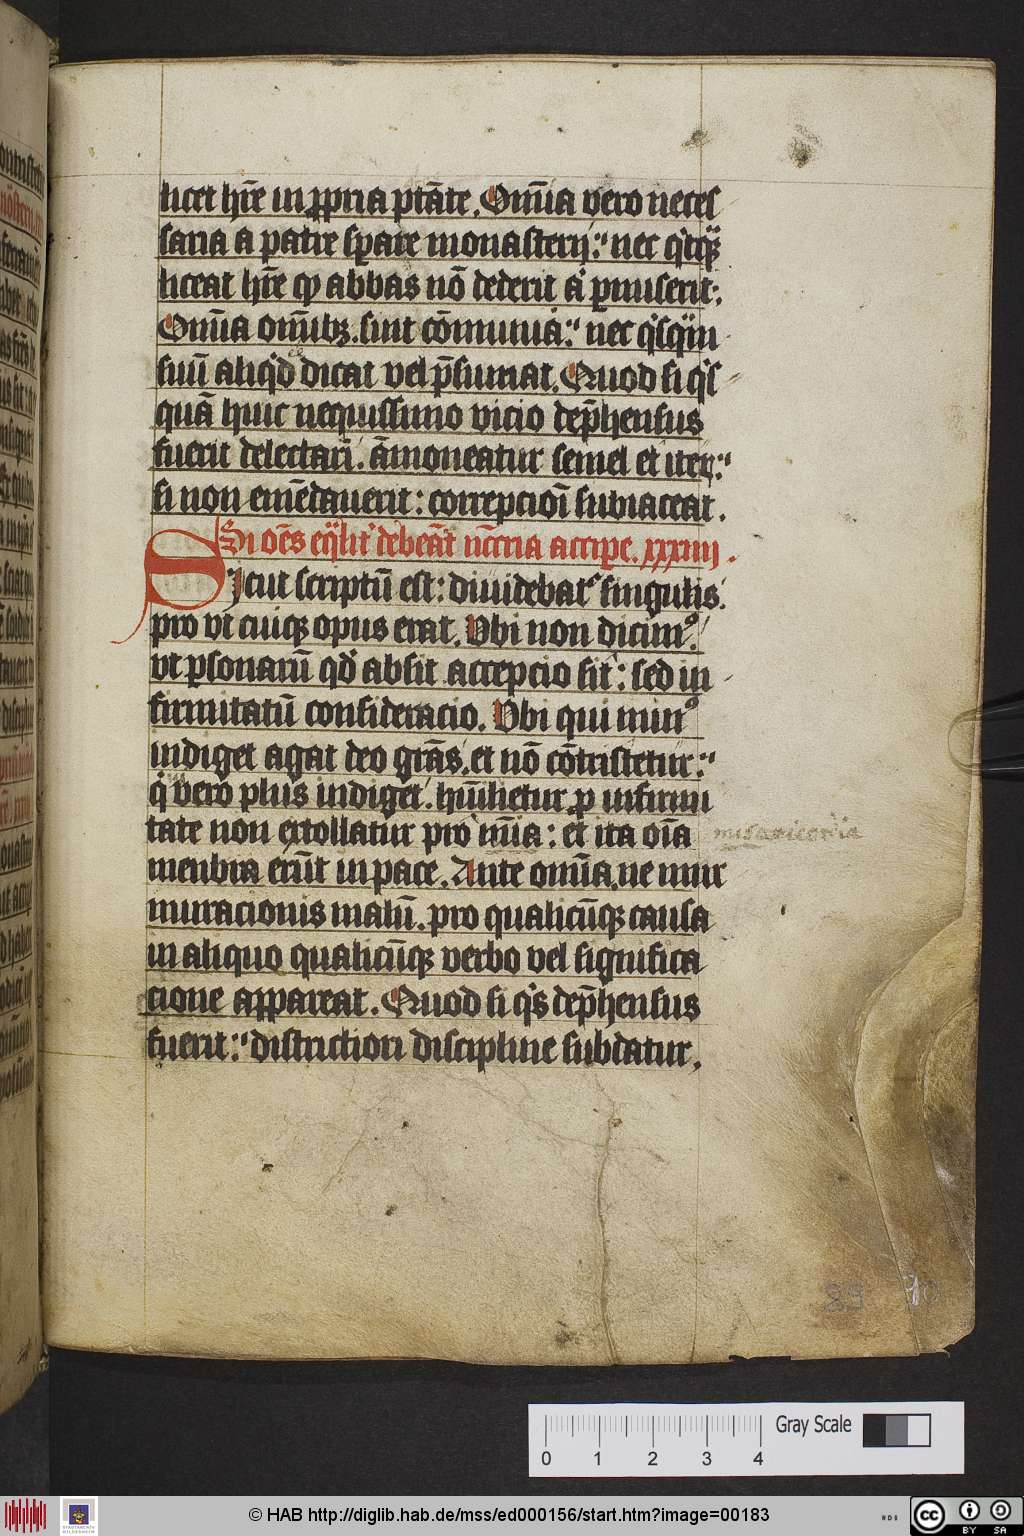 licet hr̄e in ꝓpria ptāte. Om̄ia vero neces
saria a patre sꝑare monasterij: nec qͥcqͣꝫ
liceat hr̄e qͦ abbas nō dederit aͭ ꝑmiserit.
Om̄ia om̄ibꝫ. sint cōmunia: nec qͥsqͣm
suū aliqͥd dicat vel p̄sumat. Quod si qͥs
quā huic nequissimo vicio dep̄hensus
fuerit delectari. āmoneatur semel et iteꝝ:
si non emēdauerit: correpcioī subiaceat.
Si oēs eq̄lit' debeāt nc̄cria accipe. xxxiiij.
Sicut scriptū est: diuidebat' singulis.
pro vt cuiqꝫ opus erat. Vbi non dicimꝰ.
vt ꝑsonarū qd̄ absit accepcio sit: sed in
firmitatū consideracio. Vbi qui minꝰ
indiget agat deo grās. et nō cōtristetur:
qͥ vero plus indiget. hūilietur ꝓ infirmi
tate non extollatur pro mīa: et ita oīa
menbra erūt in pace. Ante om̄ia. ne mur
muracionis malū. pro qualicūqꝫ causa
in aliquo qualicūqꝫ verbo vel significa
cione appareat. Quod si qͥs dep̄hensus
fuerit: districtiori discipline subdatur.
misericordia
89 70
Gray Scale
0 1 2 3 4
© HAB http://diglib.hab.de/mss/ed000156/start.htm?image=00183
cc BY SA